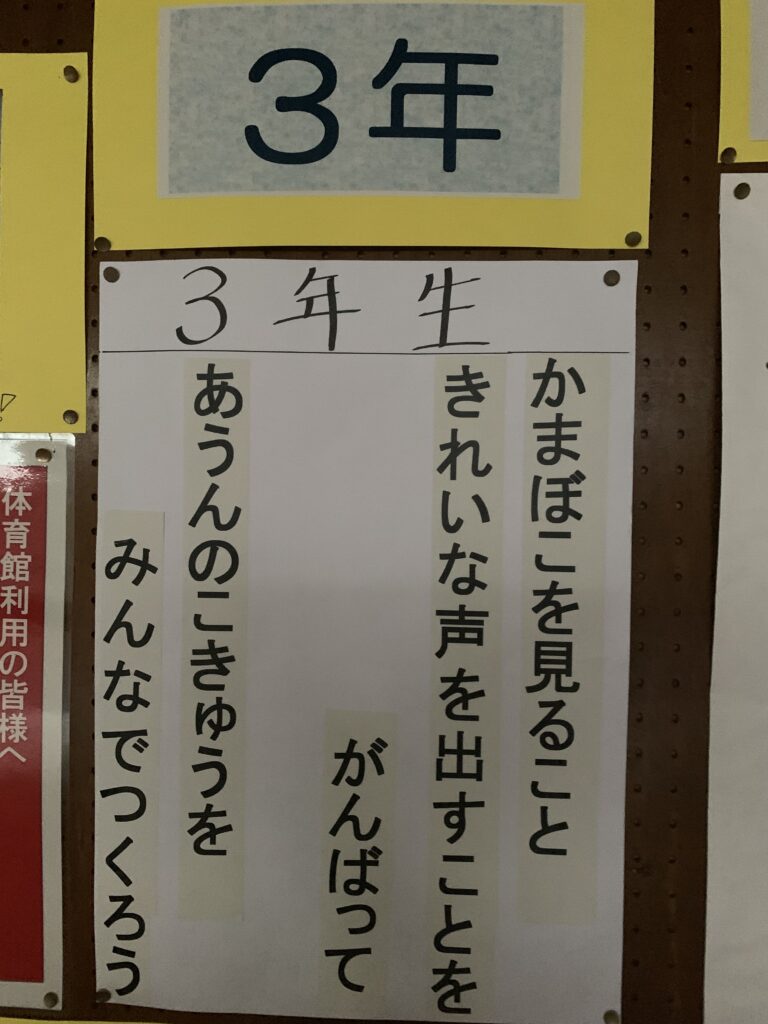 3年
3年生
かまぼこを見ること
きれいな声を出すことを
がんばって
あうんのこきゅうを
みんなでつくろう
体育館利用の皆様へ